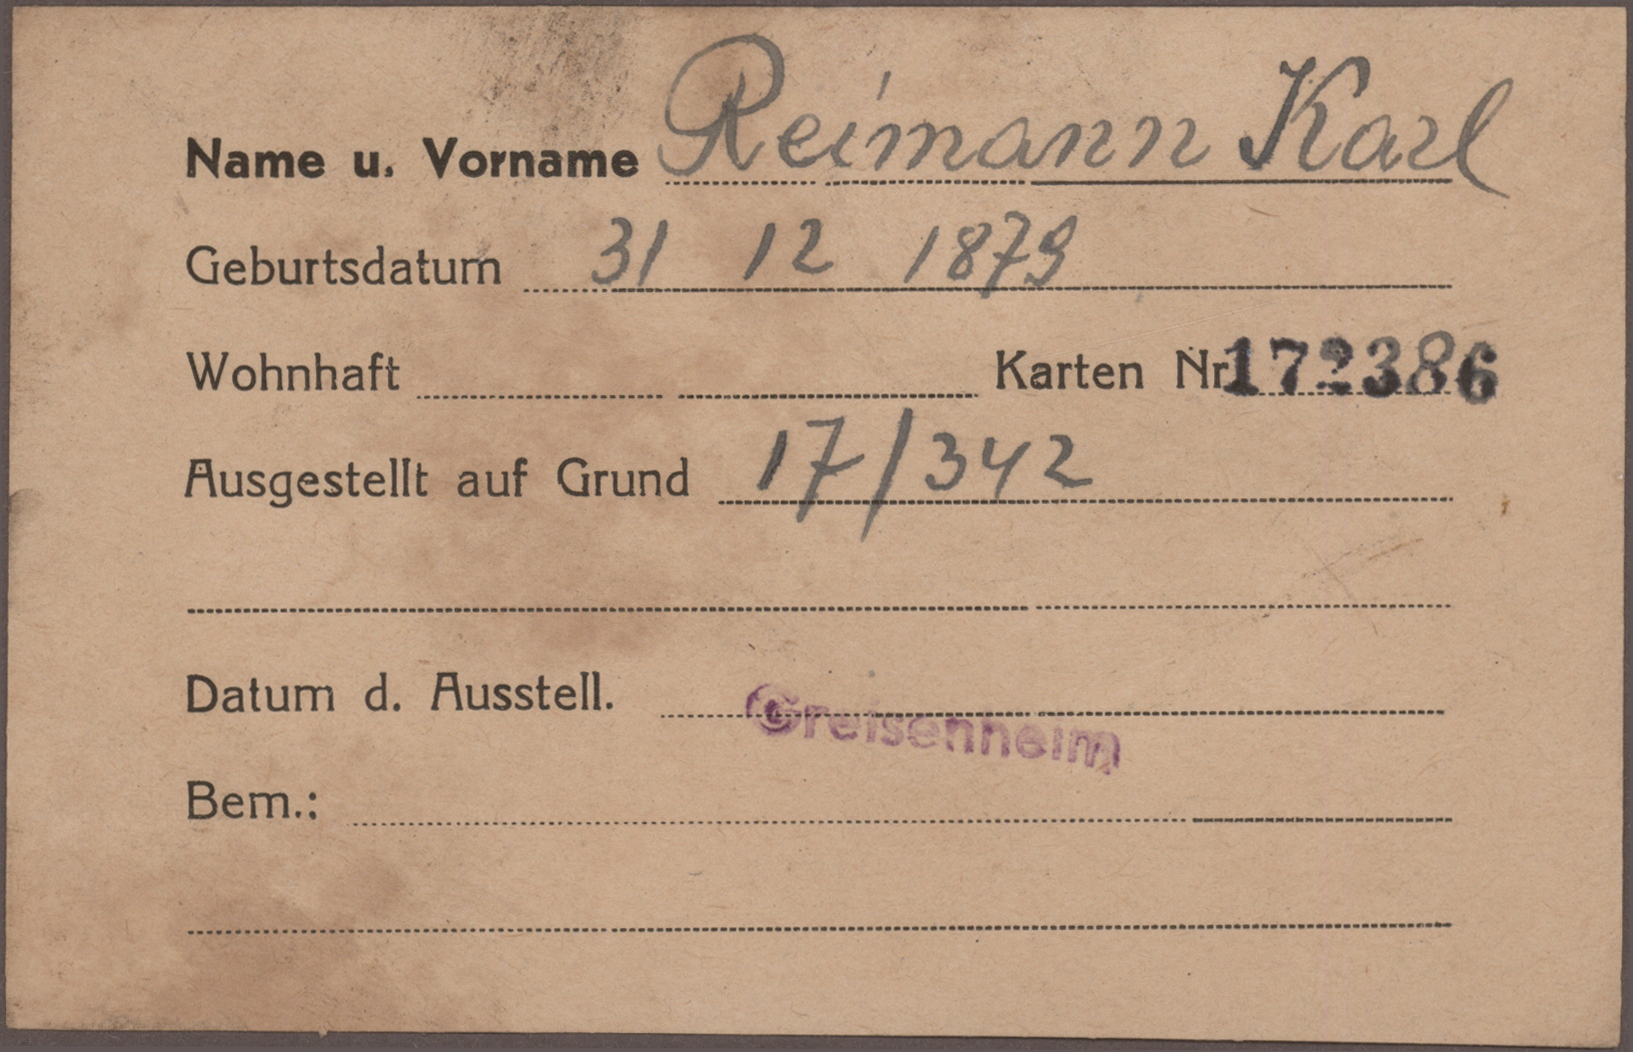 Name u. Vorname Reimann Karl
Geburtsdatum 31 12 1879
Wohnhaft Karten Nr. 172386
Ausgestellt auf Grund 17/342
Datum d. Ausstell.
Greisenheim
Bem.: